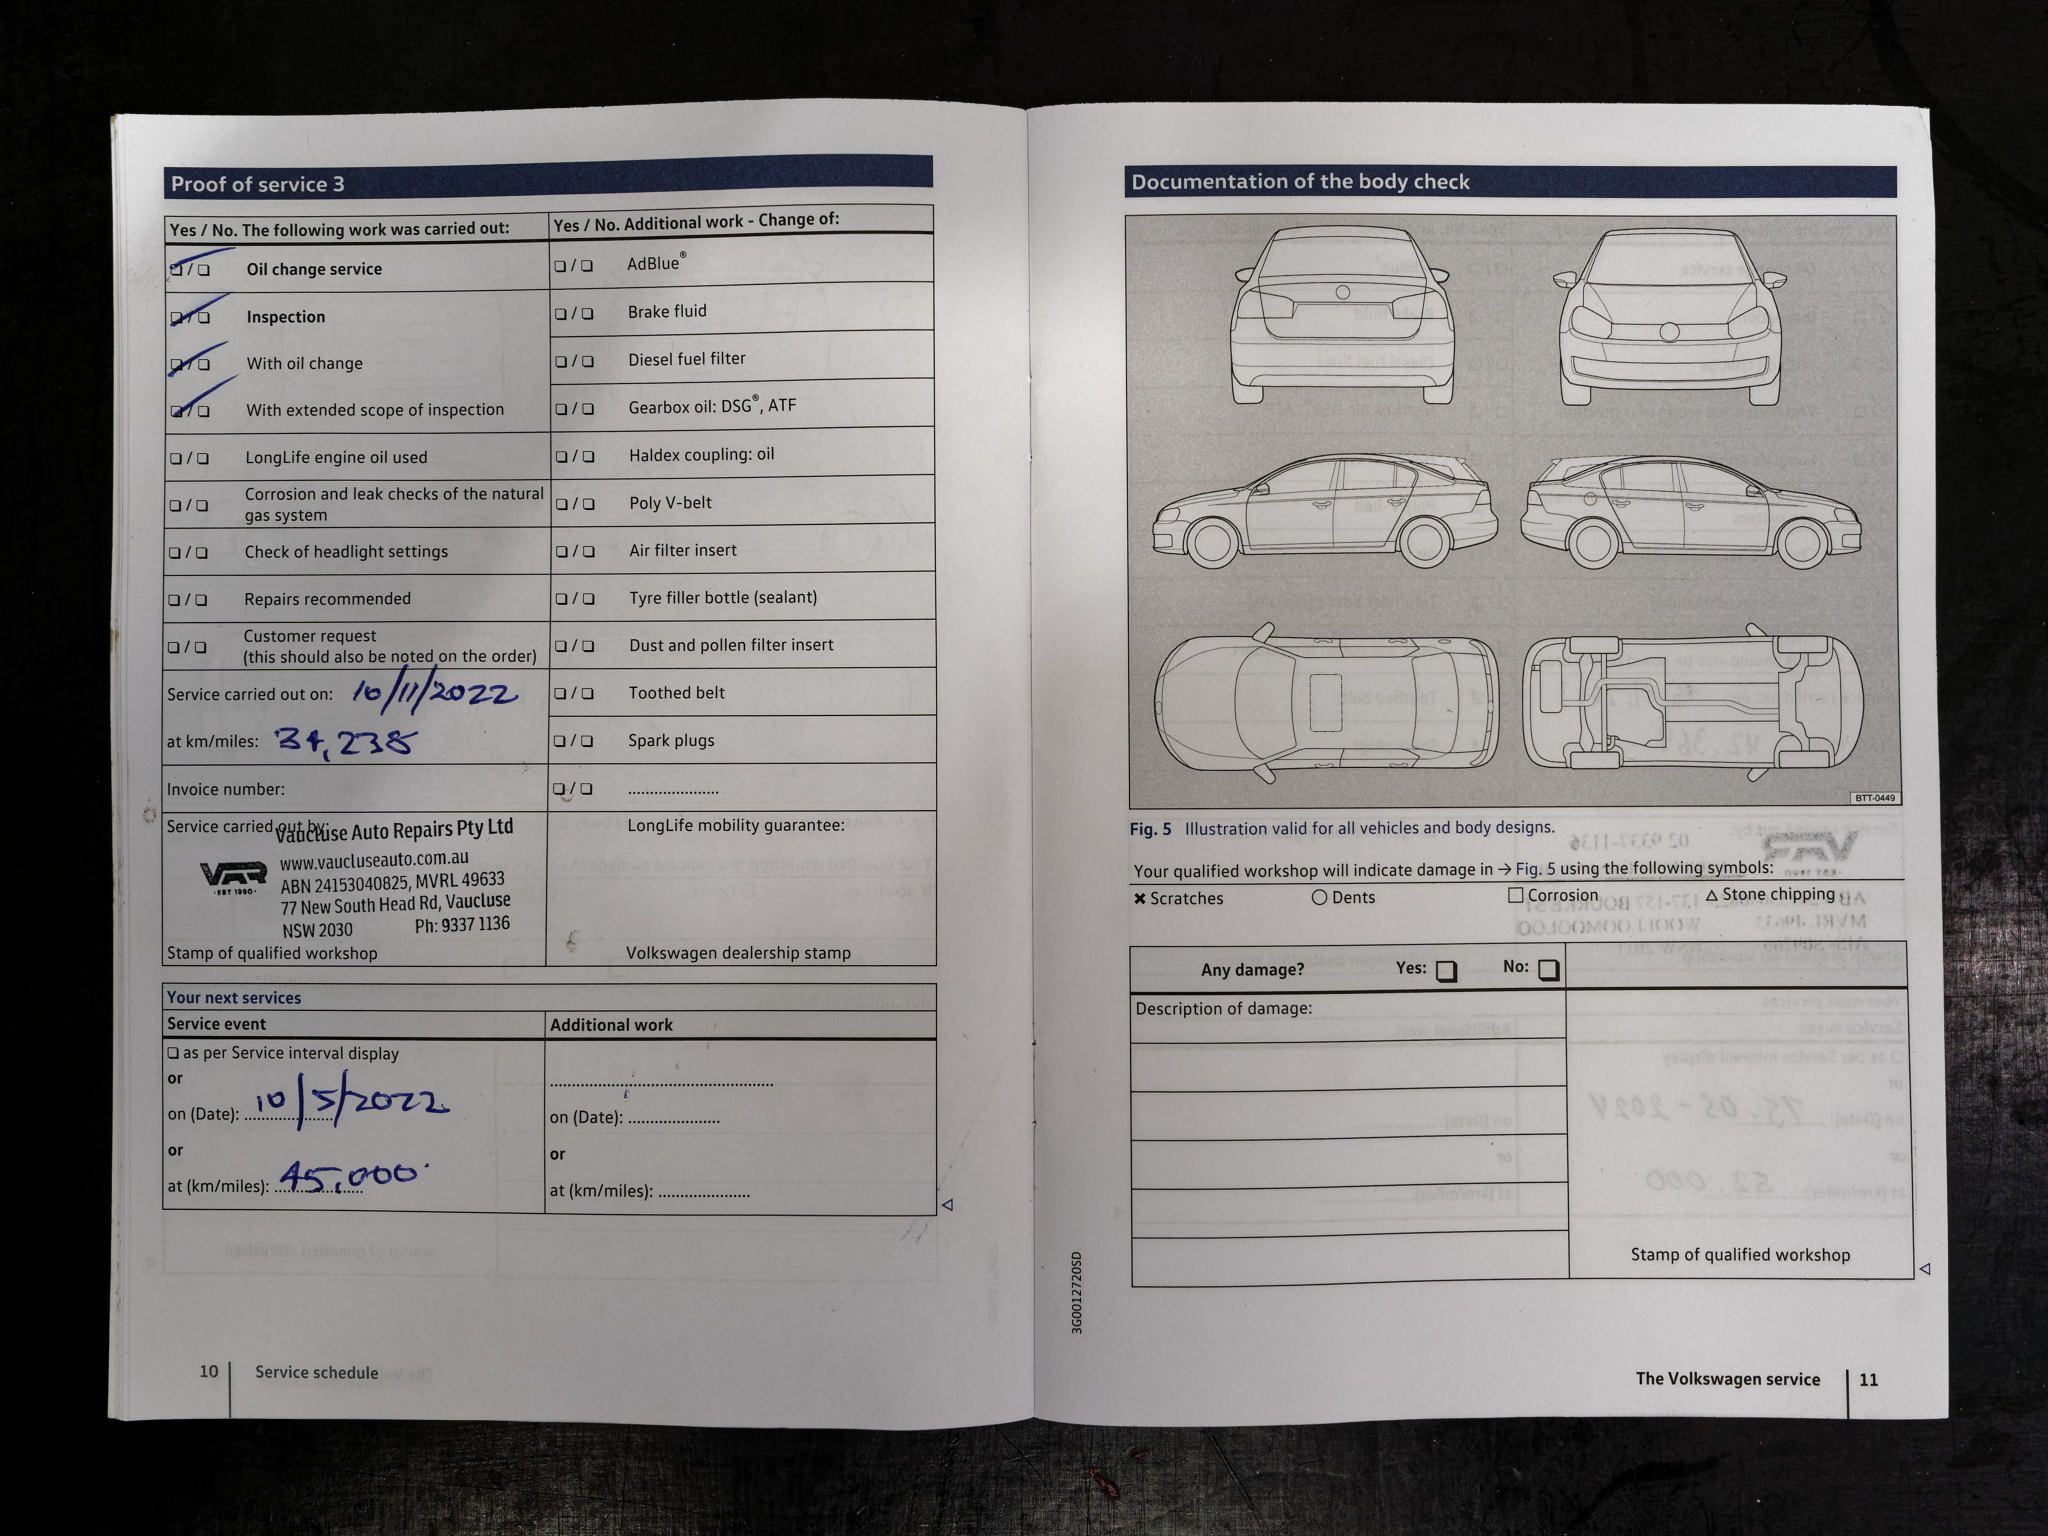 Proof of service 3
Yes / No. The following work was carried out:
Yes / No. Additional work - Change of:
❏ / ❏ Oil change service
❏ / ❏ AdBlue®
❏ / ❏ Inspection
❏ / ❏ Brake fluid
❏ / ❏ With oil change
❏ / ❏ Diesel fuel filter
❏ / ❏ With extended scope of inspection
❏ / ❏ Gearbox oil: DSG®, ATF
❏ / ❏ LongLife engine oil used
❏ / ❏ Haldex coupling: oil
❏ / ❏ Corrosion and leak checks of the natural
gas system
❏ / ❏ Poly V-belt
❏ / ❏ Check of headlight settings
❏ / ❏ Air filter insert
❏ / ❏ Repairs recommended
❏ / ❏ Tyre filler bottle (sealant)
❏ / ❏ Customer request
(this should also be noted on the order)
❏ / ❏ Dust and pollen filter insert
Service carried out on: 10/11/2022
❏ / ❏ Toothed belt
at km/miles: 34,238
❏ / ❏ Spark plugs
Invoice number:
❏ / ❏ .....................
Service carried out by:
Vaucluse Auto Repairs Pty Ltd
VAR
·EST 1990·
www.vaucluseauto.com.au
ABN 24153040825, MVRL 49633
77 New South Head Rd, Vaucluse
NSW 2030 Ph: 9337 1136
Stamp of qualified workshop
LongLife mobility guarantee:
Volkswagen dealership stamp
Your next services
Service event
Additional work
❏ as per Service interval display
or
on (Date): 10/5/2022
or
at (km/miles): 45,000
on (Date): .....................
or
at (km/miles): .....................
10 Service schedule
Documentation of the body check
BTT-0449
Fig. 5 Illustration valid for all vehicles and body designs.
Your qualified workshop will indicate damage in → Fig. 5 using the following symbols:
✖ Scratches ○ Dents □ Corrosion △ Stone chipping
Any damage? Yes: ❏ No: ❏
Description of damage:
Stamp of qualified workshop
3G0012720SD
The Volkswagen service 11